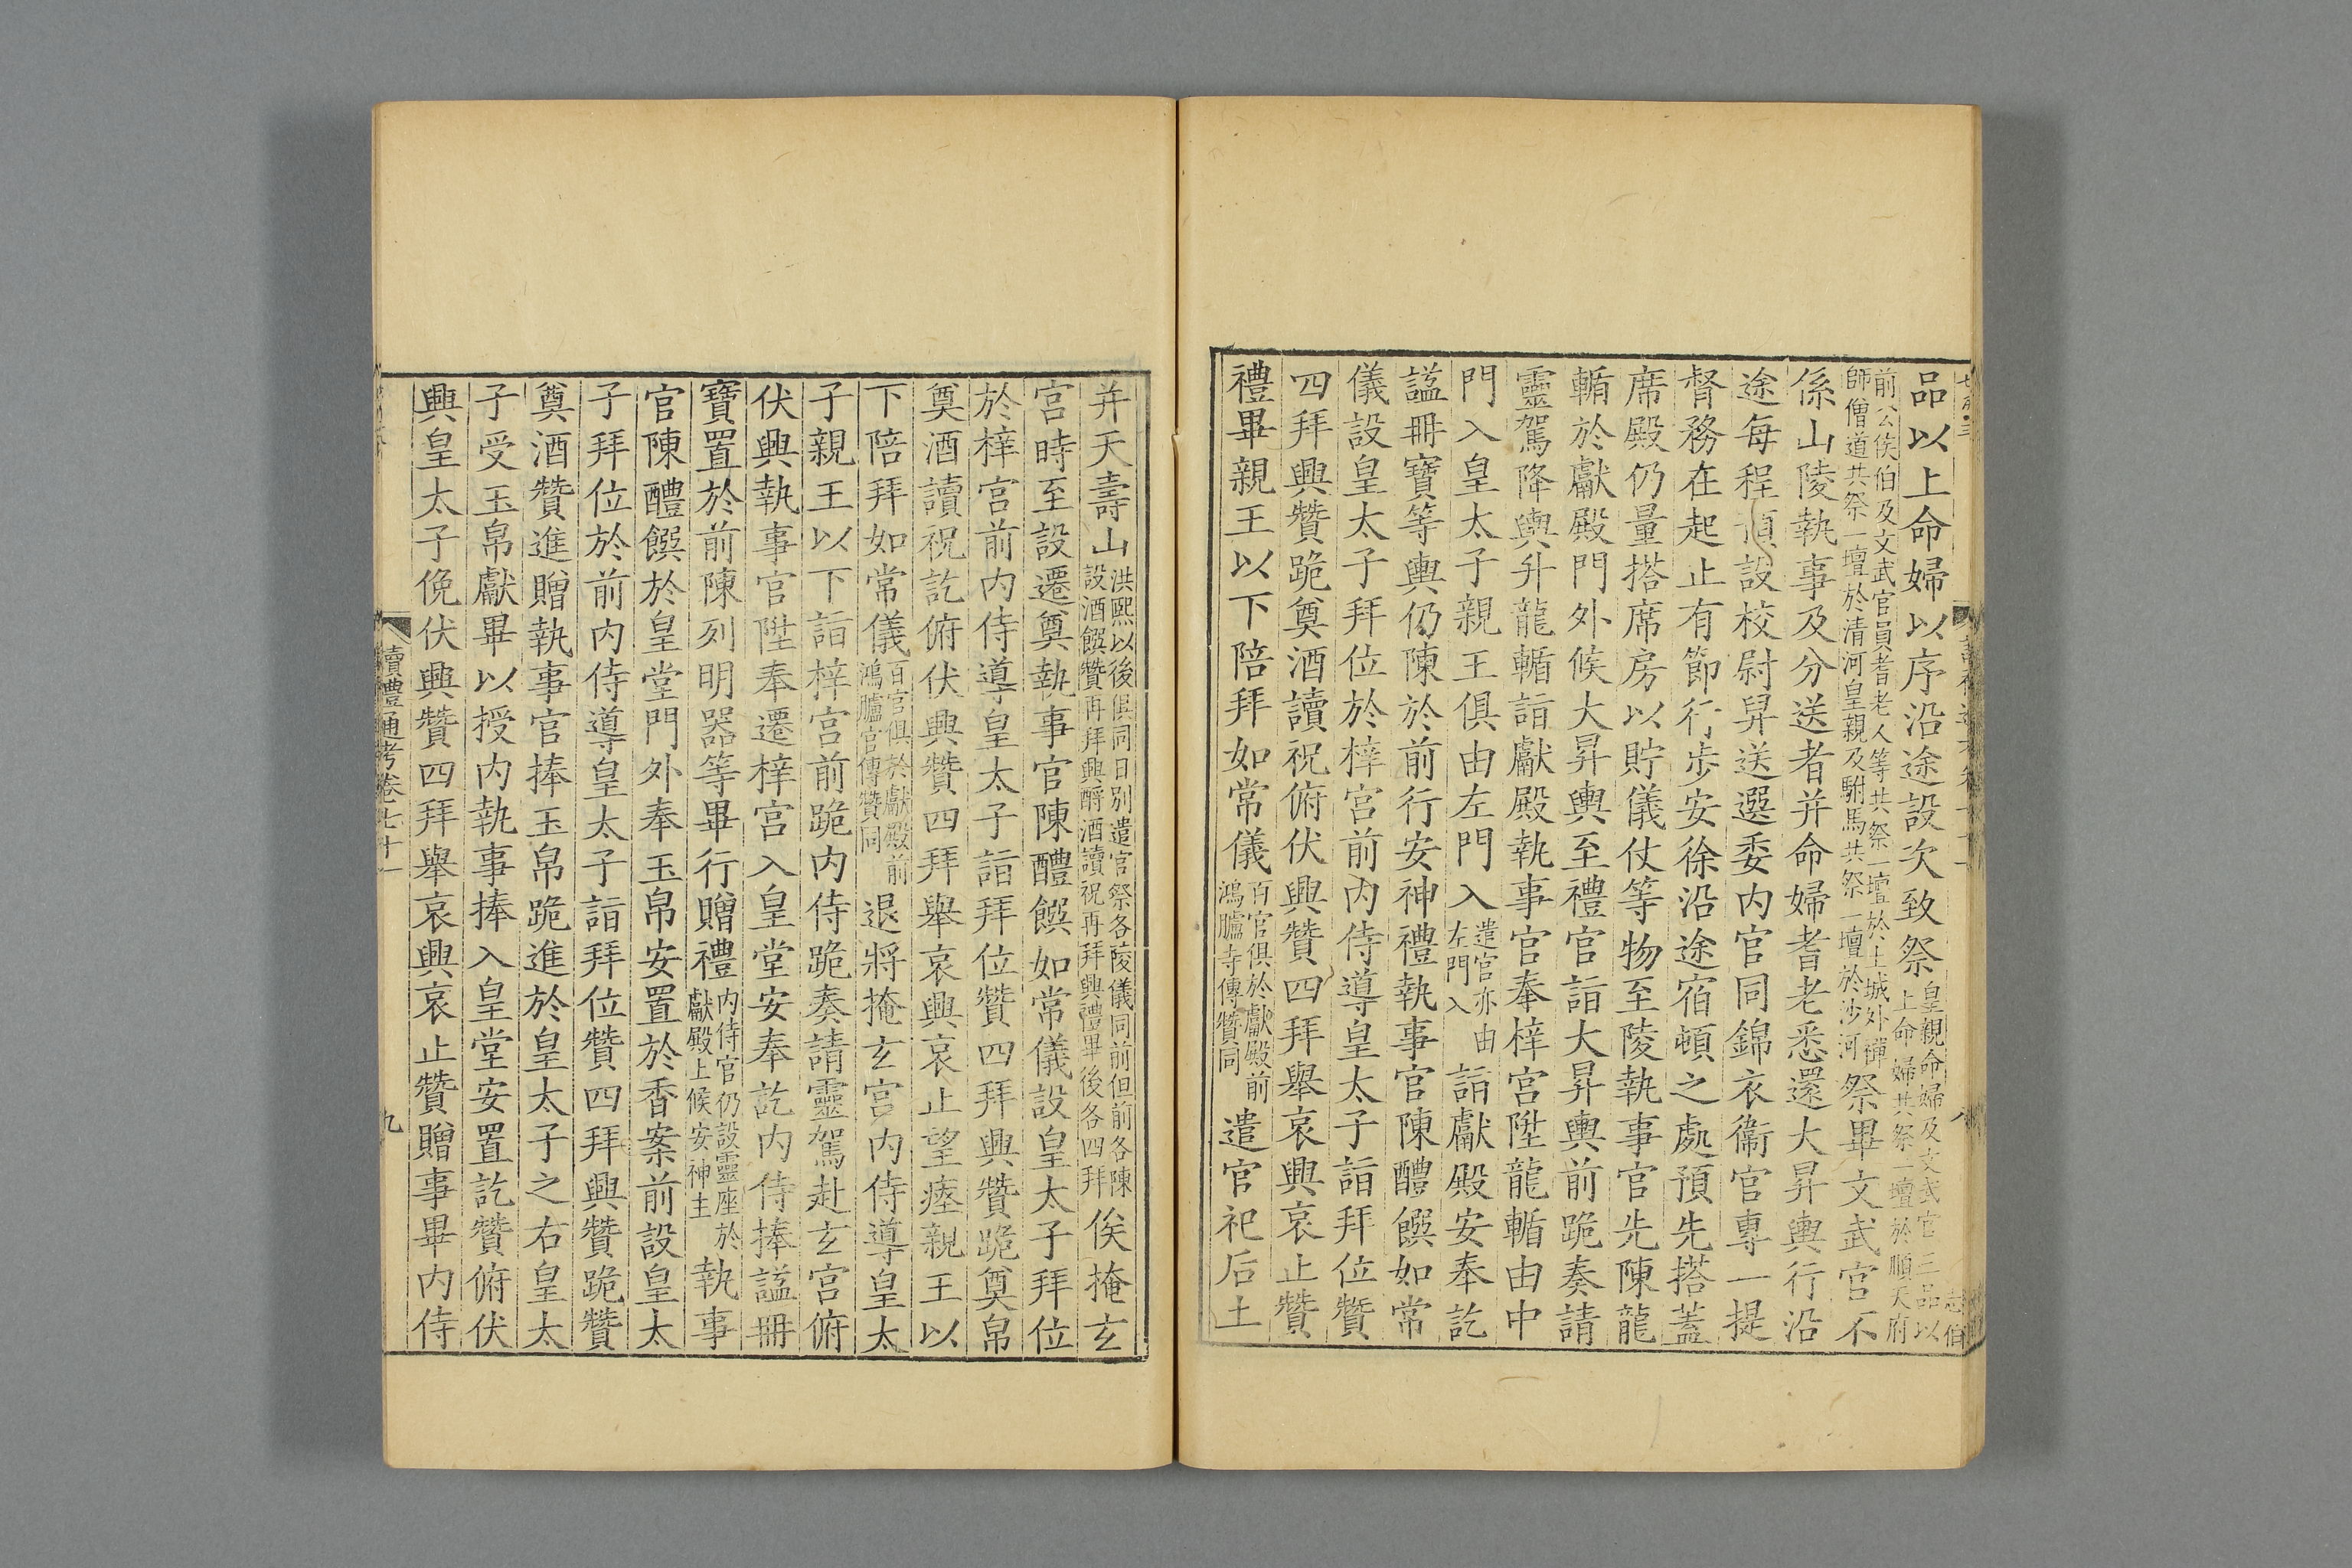 品以上命婦以序沿途設次致祭皇親命婦及文武官三品以
上命婦共祭一壇於順天府
前公侯伯及文武官員耆老人等共祭一壇於土城外禪
師僧道共祭一壇於清河皇親及駙馬共祭一壇於沙河祭畢文武官不
係山陵執事及分送者并命婦耆老悉還大昇輿行沿
途每程預設校尉昇送選委内官同錦衣衞官專一提
督務在起止有節行步安徐沿途宿頓之處預先搭蓋
席殿仍量搭席房以貯儀仗等物至陵執事官先陳龍
輴於獻殿門外候大昇輿至禮官詣大昇輿前跪奏請
靈駕降輿升龍輴詣獻殿執事官奉梓宮陞龍輴由中
門入皇太子親王俱由左門入遣官亦由
左門入詣獻殿安奉訖
諡冊寶等輿仍陳於前行安神禮執事官陳醴饌如常
儀設皇太子拜位於梓宮前内侍導皇太子詣拜位贊
四拜興贊跪奠酒讀祝俯伏興贊四拜舉哀興哀止贊
禮畢親王以下陪拜如常儀百官俱於獻殿前
鴻臚寺傳贊同遣官祀后土
并天壽山洪熙以後俱同日别遣官祭各陵儀同前但前各陳
設酒饌贊再拜興酹酒讀祝再拜興禮畢後各四拜俟掩玄
宮時至設遷奠執事官陳醴饌如常儀設皇太子拜位
於梓宮前内侍導皇太子詣拜位贊四拜興贊跪奠帛
奠酒讀祝訖俯伏興贊四拜舉哀興哀止望瘞親王以
下陪拜如常儀百官俱於獻殿前
鴻臚官傳贊同退將掩玄宮内侍導皇太
子親王以下詣梓宮前跪内侍跪奏請靈駕赴玄宮俯
伏興執事官陞奉遷梓宮入皇堂安奉訖内侍捧諡冊
寶置於前陳列明器等畢行贈禮内侍官仍設靈座於
獻殿上候安神主執事
官陳醴饌於皇堂門外奉玉帛安置於香案前設皇太
子拜位於前内侍導皇太子詣拜位贊四拜興贊跪贊
奠酒贊進贈執事官捧玉帛跪進於皇太子之右皇太
子受玉帛獻畢以授内執事捧入皇堂安置訖贊俯伏
興皇太子俛伏興贊四拜舉哀興哀止贊贈事畢内侍
讀禮通考卷七十一
九